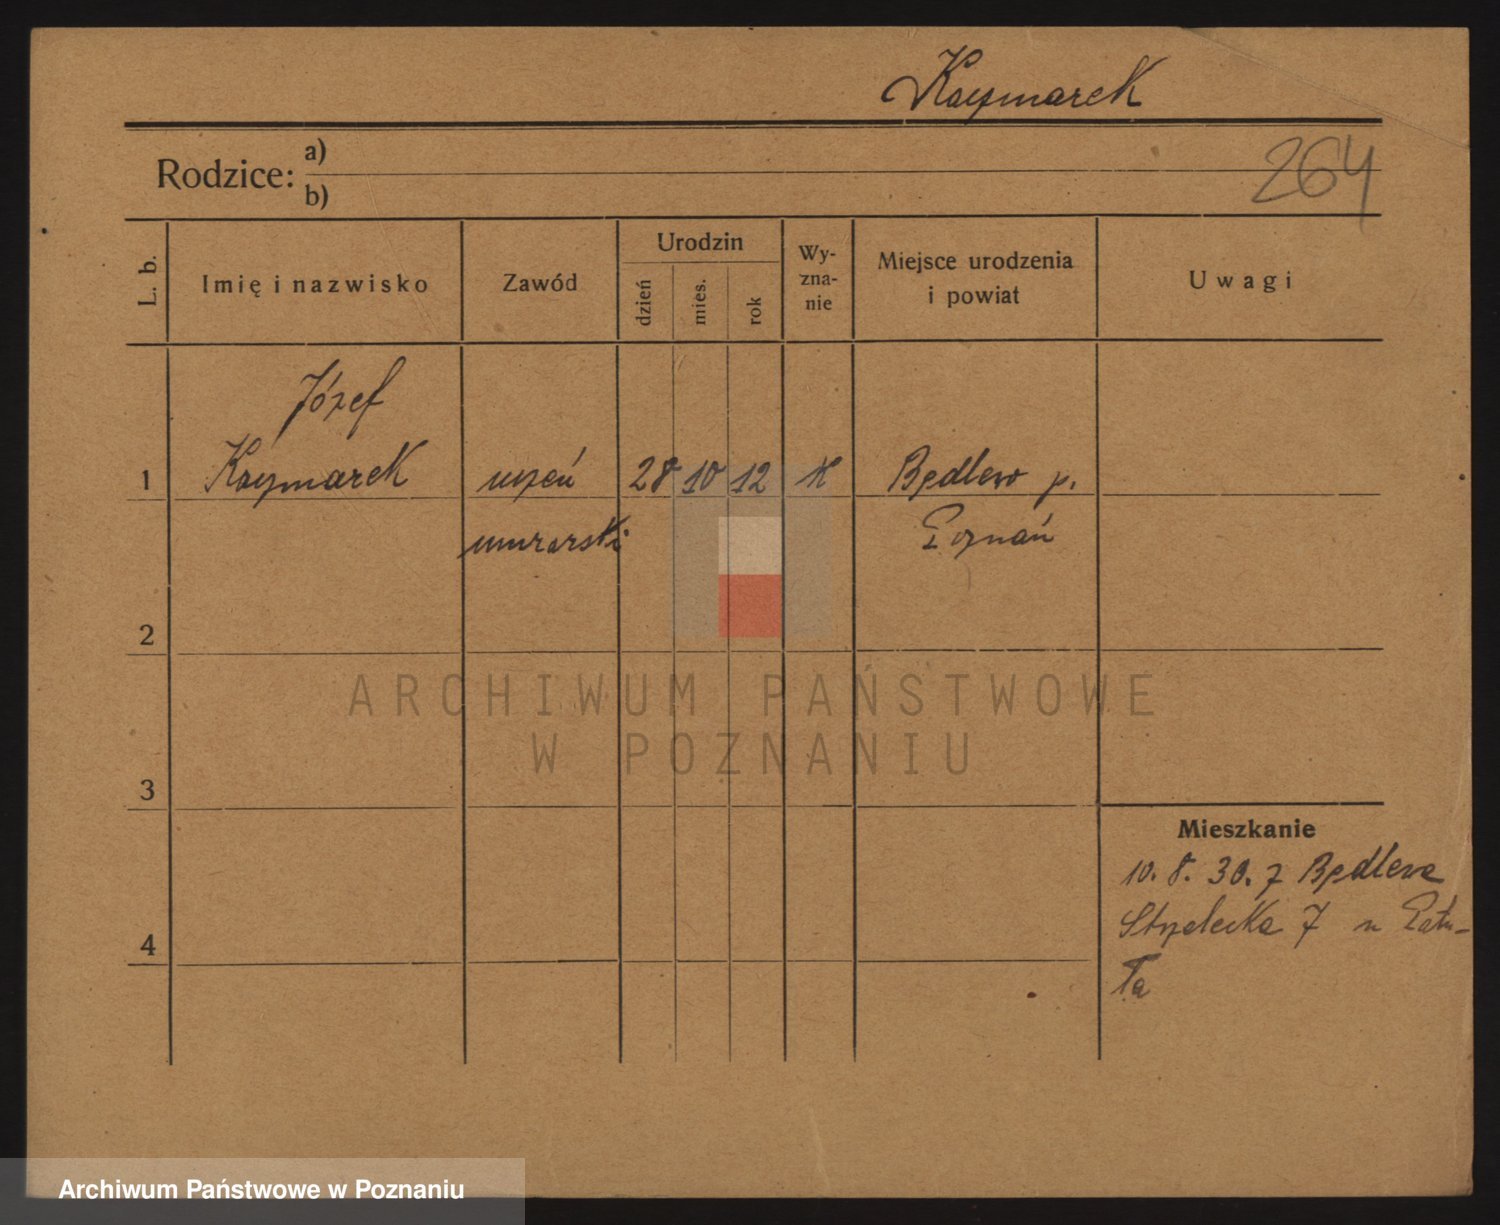 Kaczmarek
Rodzice:
a)
b)
264
L. b.
Imię i nazwisko
Zawód
Urodzin
dzień
mies.
rok
Wy-
zna-
nie
Miejsce urodzenia
i powiat
Uwagi
Józef
1 Kaczmarek uczeń 28 10 12 K Będlewo p.
murarski Poznań
2
3
4
Mieszkanie
10. 8. 30. z Będlewa
Strzelecka 7 u
ARCHIWUM PAŃSTWOWE
W POZNANIU
Archiwum Państwowe w Poznaniu